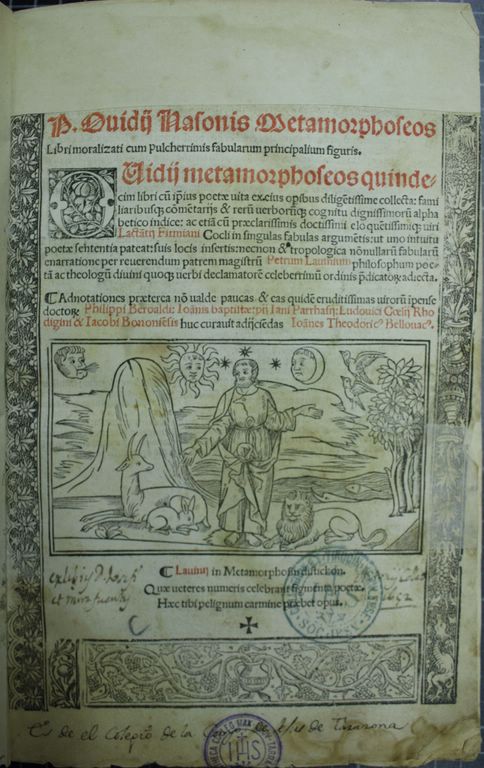 P. Ouidij Nasonis Metamorphoseos
Libri moralizati cum pulcherrimis fabularum principalium figuris.
Ouidij metamorphoseos quinde-
cim libri cū ip̄ius poetæ uita ex eius opībus diligētissime collecta: fami
liaribusq; cōmētarijs & rerū uerborūq; cognitu dignissimorū alpha
betico indice: ac etiā cū præclarissimis doctissimi eloquētissimiq; uiri
Lactātij Firmiani Coeli in singulas fabulas argumētis: ut uno intuitu
poetæ sententia pateat: suis locis insertis: necnon & tropologica nōnullarū fabularū
enarratione per reuerendum patrem magistrū Petrum Lauinium philosophum poe-
tā ac theologū diuini quoq; uerbi declamatorē celeberrimū ordinis p̄dicatoɽ adiecta.
¶ Adnotationes præterea nō ualde paucas & eas quidē eruditissimas uirorū ipense
doctoɽ Philippi Beroaldi: Ioānis baptistæ pij Iani Parrhasij: Ludouici Coelij Rho
digini & Iacobi Bononiēsis huc curauit adijciēdas Ioānes Theodoricꝰ Bellouacꝰ.
¶ Lauinij in Metamorphosin distichon.
Quæ ueteres numeris celebrant figmenta poetæ.
Hæc tibi pelignum carmine præbet opus.
Es de el Colegio de la de Tarazona
IHS